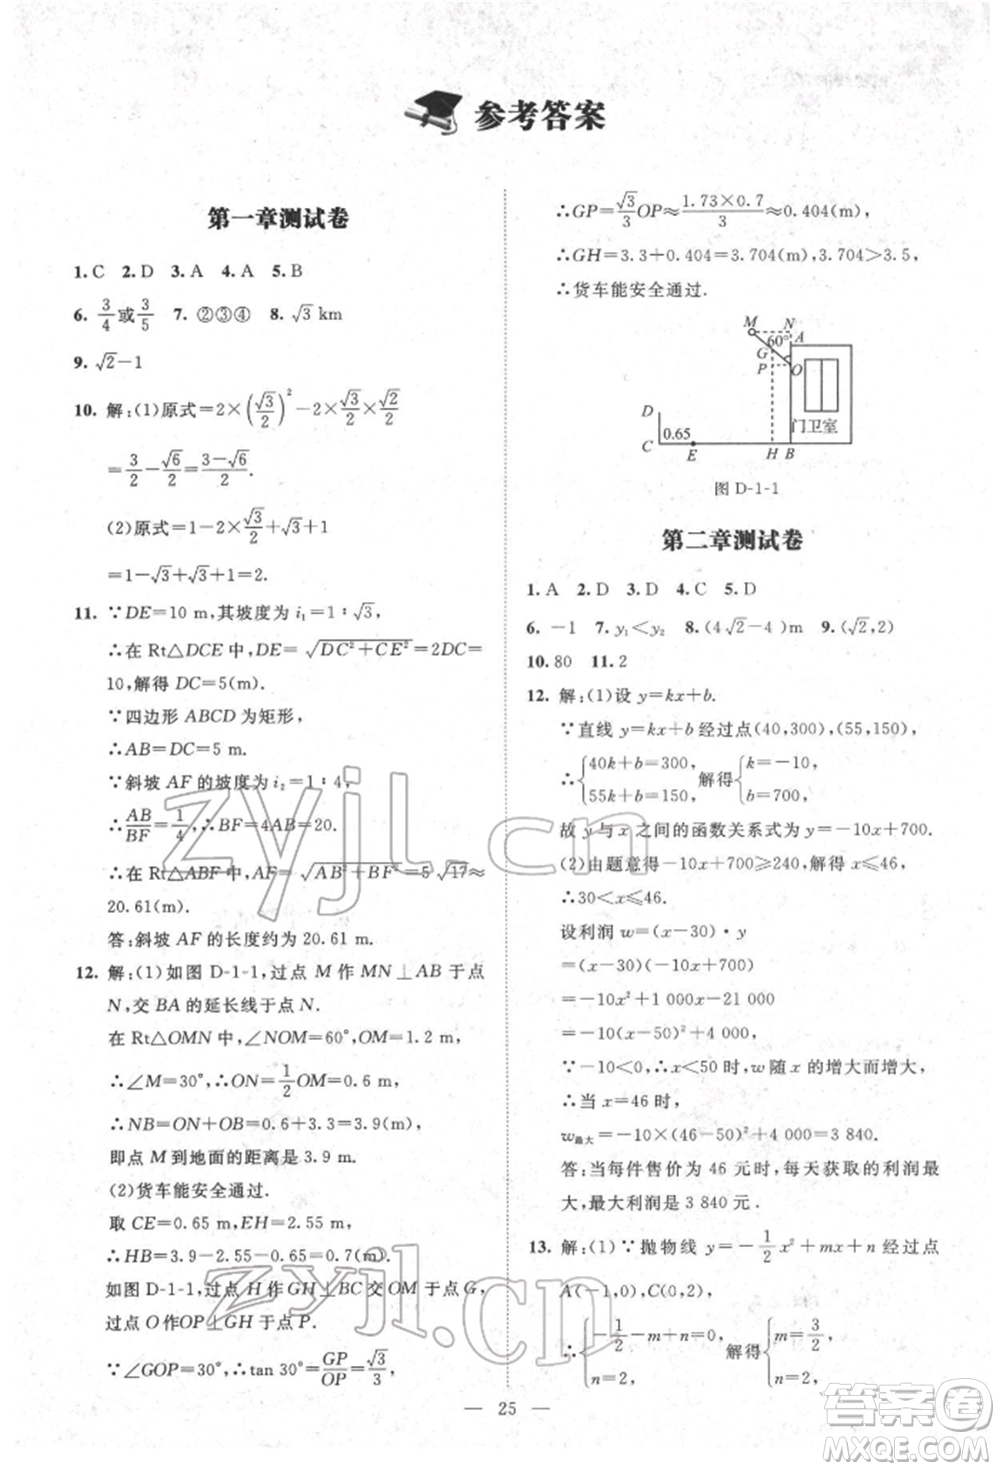 参考答案
第一章测试卷
1. C 2. D 3. A 4. A 5. B
6. 3/4或3/5 7. ②③④ 8. √3 km
9. √2－1
10. 解:(1)原式＝2×(√3/2)²－2×√3/2×√2/2
＝3/2－√6/2＝(3－√6)/2.
(2)原式＝1－2×√3/2＋√3＋1
＝1－√3＋√3＋1＝2.
11. ∵DE＝10 m,其坡度为 i₁＝1∶√3,
∴在 Rt△DCE 中,DE＝√(DC²＋CE²)＝2DC＝
10,解得 DC＝5(m).
∵四边形 ABCD 为矩形,
∴AB＝DC＝5 m.
∵斜坡 AF 的坡度为 i₂＝1∶4,
∴AB/BF＝1/4,∴BF＝4AB＝20.
∴在 Rt△ABF 中,AF＝√(AB²＋BF²)＝5√17≈
20.61(m).
答:斜坡 AF 的长度约为 20.61 m.
12. 解:(1)如图 D-1-1,过点 M 作 MN⊥AB 于点
N,交 BA 的延长线于点 N.
在 Rt△OMN 中,∠NOM＝60°,OM＝1.2 m,
∴∠M＝30°,∴ON＝1/2OM＝0.6 m,
∴NB＝ON＋OB＝0.6＋3.3＝3.9(m),
即点 M 到地面的距离是 3.9 m.
(2)货车能安全通过.
取 CE＝0.65 m,EH＝2.55 m,
∴HB＝3.9－2.55－0.65＝0.7(m).
如图 D-1-1,过点 H 作 GH⊥BC 交 OM 于点 G,
过点 O 作OP⊥GH 于点 P.
∵∠GOP＝30°,∴tan 30°＝GP/OP＝√3/3,
∴GP＝√3/3OP≈1.73×0.7/3≈0.404(m),
∴GH＝3.3＋0.404＝3.704(m),3.704＞3.5,
∴货车能安全通过.
M N
A
60°
G
P O
D
门卫室
C 0.65 E H B
图 D-1-1
第二章测试卷
1. A 2. D 3. D 4. C 5. D
6. －1 7. y₁＜y₂ 8. (4√2－4)m 9. (√2,2)
10. 80 11. 2
12. 解:(1)设 y＝kx＋b.
∵直线 y＝kx＋b 经过点(40,300),(55,150),
∴{40k＋b＝300, 55k＋b＝150, 解得{k＝－10, b＝700.
故 y 与 x 之间的函数关系式为 y＝－10x＋700.
(2)由题意得－10x＋700≥240,解得 x≤46,
∴30＜x≤46.
设利润 w＝(x－30)·y
＝(x－30)(－10x＋700)
＝－10x²＋1 000x－21 000
＝－10(x－50)²＋4 000,
∵－10＜0,∴x＜50 时,w 随 x 的增大而增大,
∴当 x＝46 时,
w最大＝－10×(46－50)²＋4 000＝3 840.
答:当每件售价为 46 元时,每天获取的利润最
大,最大利润是 3 840 元.
13. 解:(1)∵抛物线 y＝－1/2x²＋mx＋n 经过点
A(－1,0),C(0,2),
∴{－1/2－m＋n＝0, n＝2, 解得{m＝3/2, n＝2,
— 25 —
zyjl.cn
zyjl.cn
答案圈
MXQE.COM